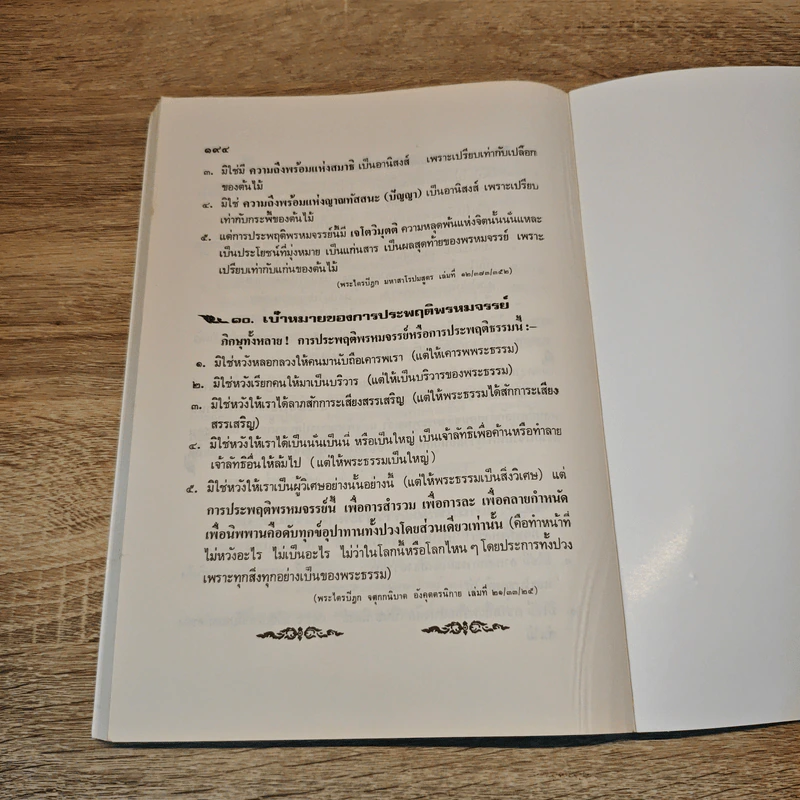 ๑๙๔
๓. มิใช่มี ความถึงพร้อมแห่งสมาธิ เป็นอานิสงส์ เพราะเปรียบเท่ากับเปลือก
ของต้นไม้
๔. มิใช่ ความถึงพร้อมแห่งญาณทัสสนะ (ปัญญา) เป็นอานิสงส์ เพราะเปรียบ
เท่ากับกระพี้ของต้นไม้
๕. แต่การประพฤติพรหมจรรย์นี้มี เจโตวิมุตติ ความหลุดพ้นแห่งจิตนั้นนั่นแหละ
เป็นประโยชน์ที่มุ่งหมาย เป็นแก่นสาร เป็นผลสุดท้ายของพรหมจรรย์ เพราะ
เปรียบเท่ากับแก่นของต้นไม้
(พระไตรปิฎก มหาสาโรปมสูตร เล่มที่ ๑๒/๓๗๓/๓๕๒)
๑๐. เป้าหมายของการประพฤติพรหมจรรย์
ภิกษุทั้งหลาย ! การประพฤติพรหมจรรย์หรือการประพฤติธรรมนี้ :–
๑. มิใช่หวังหลอกลวงให้คนมานับถือเคารพเรา (แต่ให้เคารพพระธรรม)
๒. มิใช่หวังเรียกคนให้มาเป็นบริวาร (แต่ให้เป็นบริวารของพระธรรม)
๓. มิใช่หวังให้เราได้ลาภสักการะเสียงสรรเสริญ (แต่ให้พระธรรมได้สักการะเสียง
สรรเสริญ)
๔. มิใช่หวังให้เราได้เป็นนั่นเป็นนี่ หรือเป็นใหญ่ เป็นเจ้าลัทธิเพื่อค้านหรือทำลาย
เจ้าลัทธิอื่นให้ล้มไป (แต่ให้พระธรรมเป็นใหญ่)
๕. มิใช่หวังให้เราเป็นผู้วิเศษอย่างนั้นอย่างนี้ (แต่ให้พระธรรมเป็นสิ่งวิเศษ) แต่
การประพฤติพรหมจรรย์นี้ เพื่อการสำรวม เพื่อการละ เพื่อคลายกำหนัด
เพื่อนิพพานคือดับทุกข์อุปาทานทั้งปวงโดยส่วนเดียวเท่านั้น (คือทำหน้าที่
ไม่หวังอะไร ไม่เป็นอะไร ไม่ว่าในโลกนี้หรือโลกไหน ๆ โดยประการทั้งปวง
เพราะทุกสิ่งทุกอย่างเป็นของพระธรรม)
(พระไตรปิฎก จตุกกนิบาต อังคุตตรนิกาย เล่มที่ ๒๑/๓๓/๒๕)